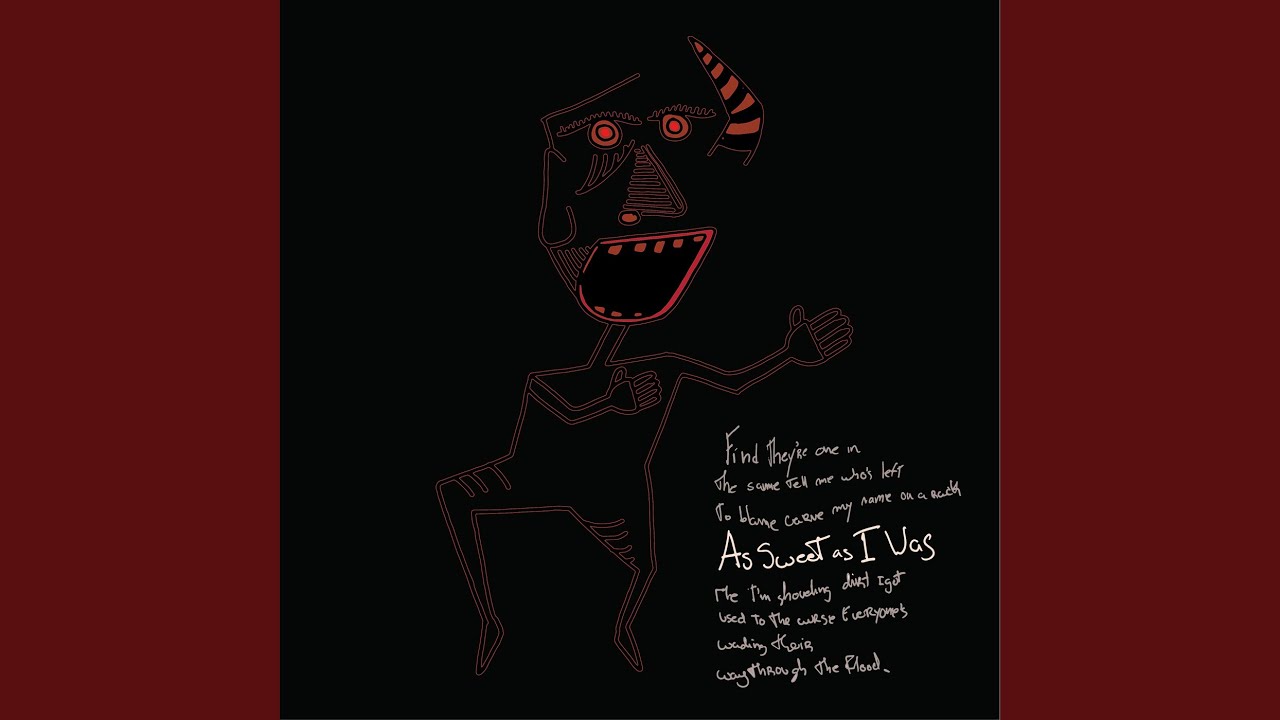 Find They're one in
The same Tell me who's left
To blame carve my name on a rack
As Sweet as I Was
Me I'm shoveling dirt I got
used to the curse Everyone's
wading their
way through the flood.